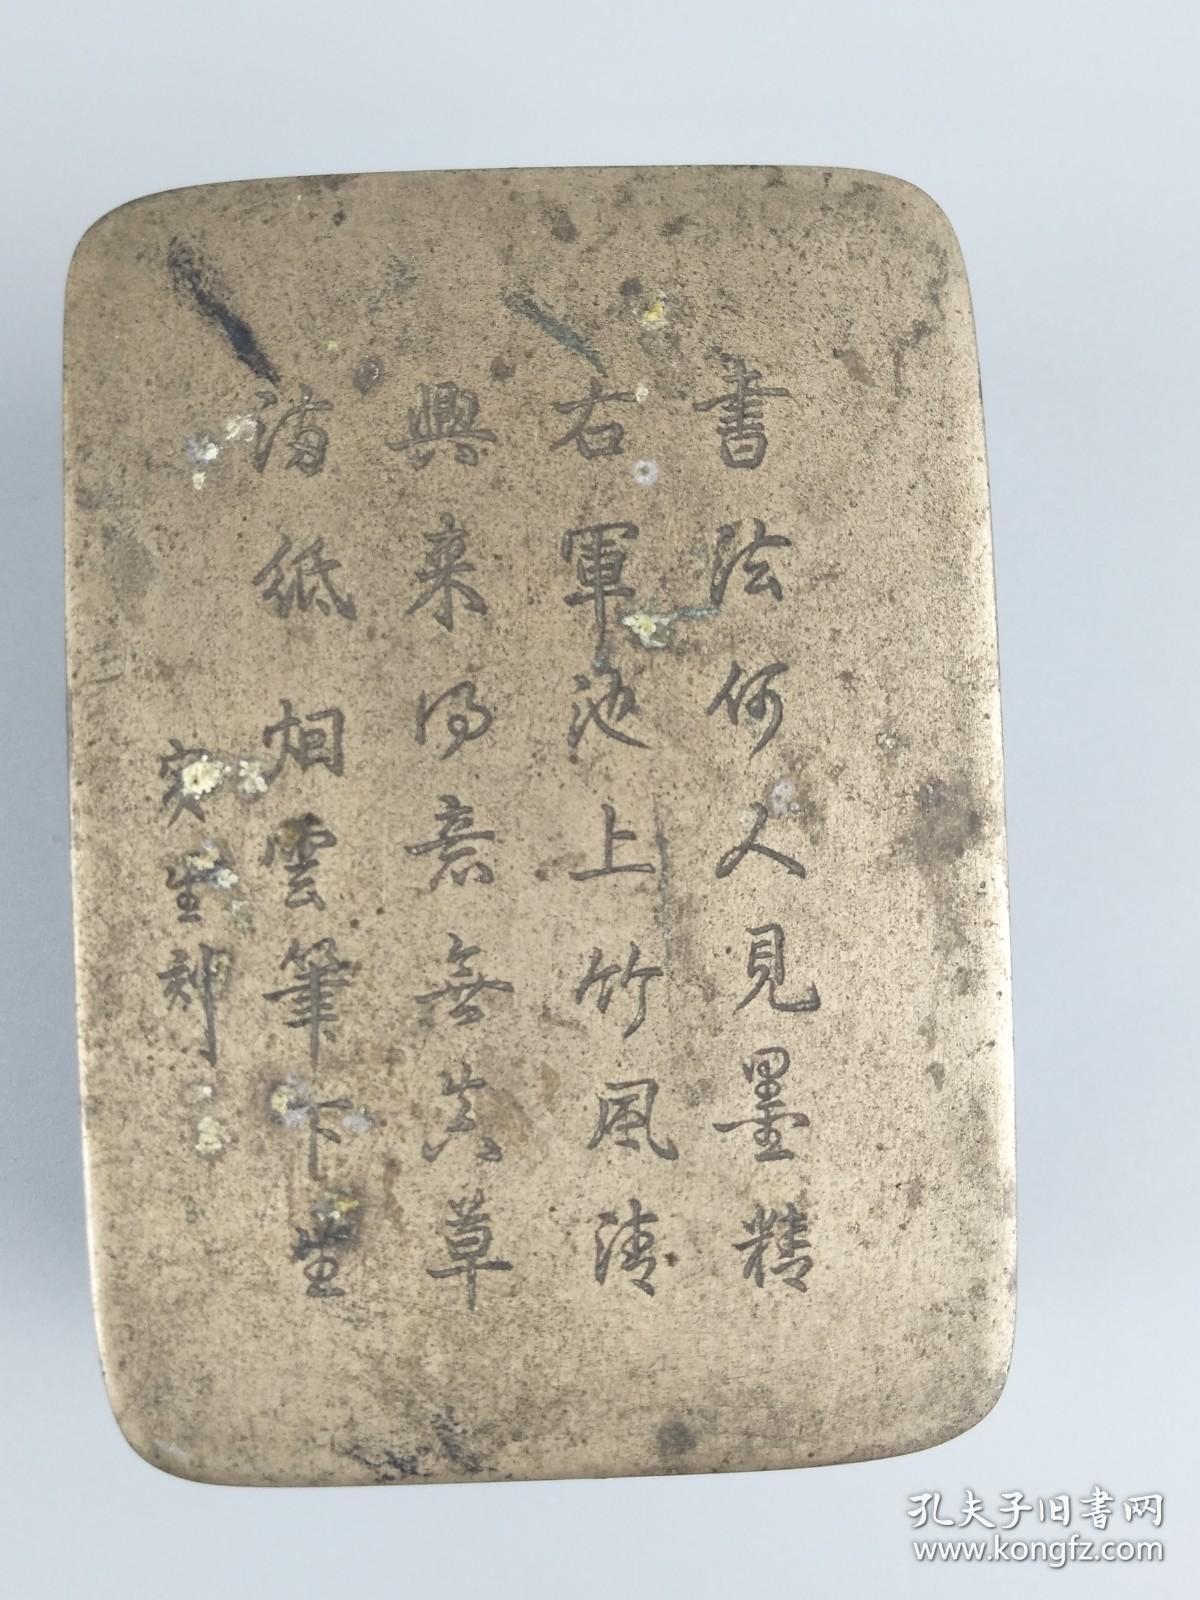 書法何人見墨精
右軍池上竹風清
興来得意無真草
滿紙烟雲筆下生
寅生刻
孔夫子旧書网
www.kongfz.com